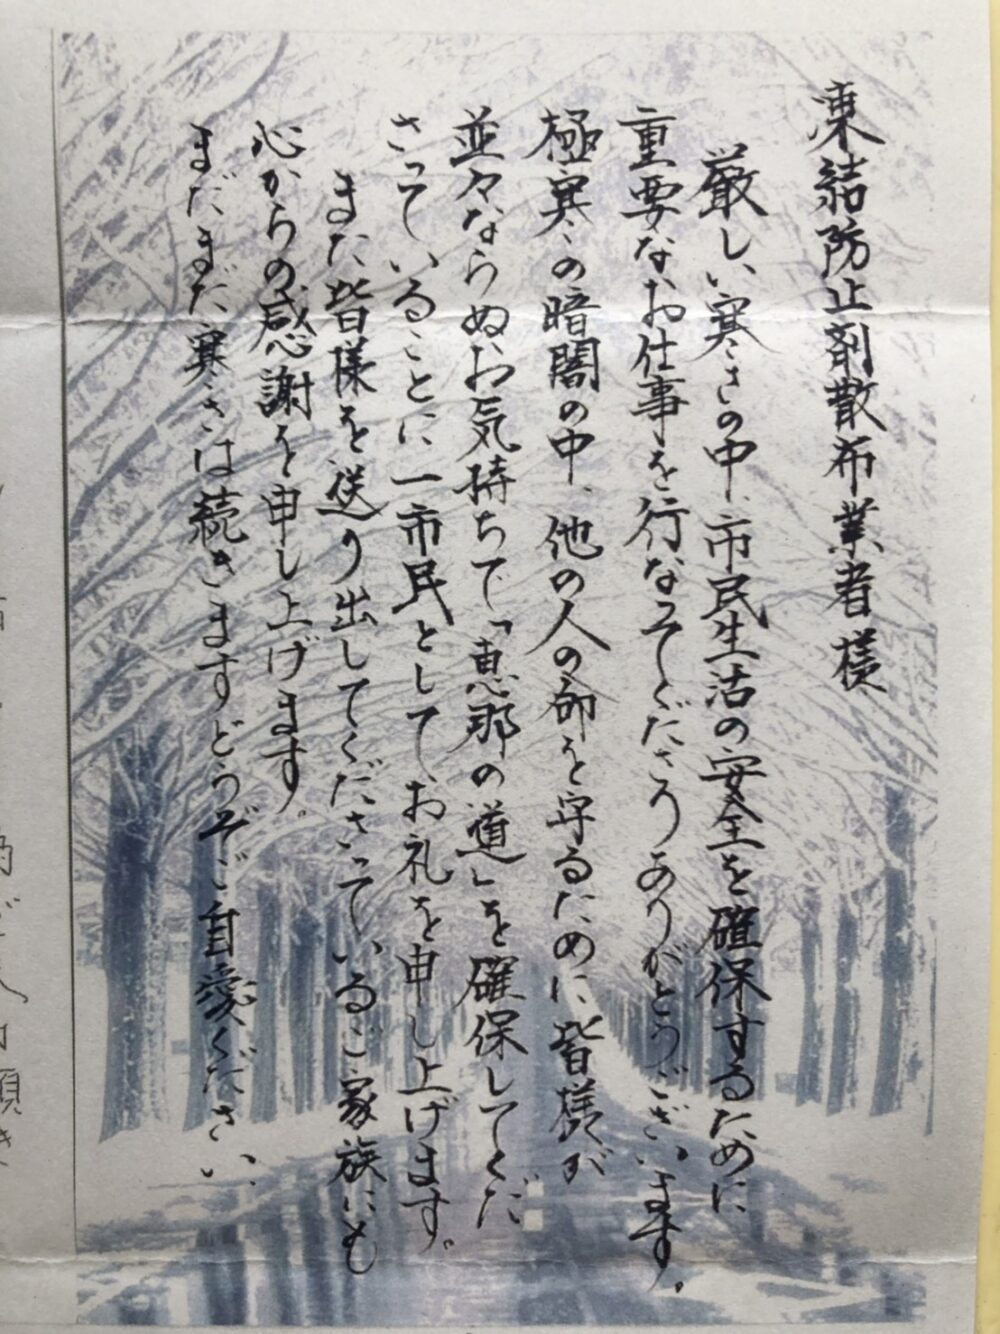 凍結防止剤散布業者様
厳しい寒さの中、市民生活の安全を確保するために
重要なお仕事を行なってくださりありがとうございます。
極寒の暗闇の中、他の人の命を守るために皆様が
並々ならぬお気持ちで「恵那の道」を確保してくだ
さっていることに一市民として、お礼を申し上げます。
また皆様を送り出してくださっているご家族にも
心からの感謝を申し上げます。
まだまだ寒さは続きますどうぞご自愛ください、